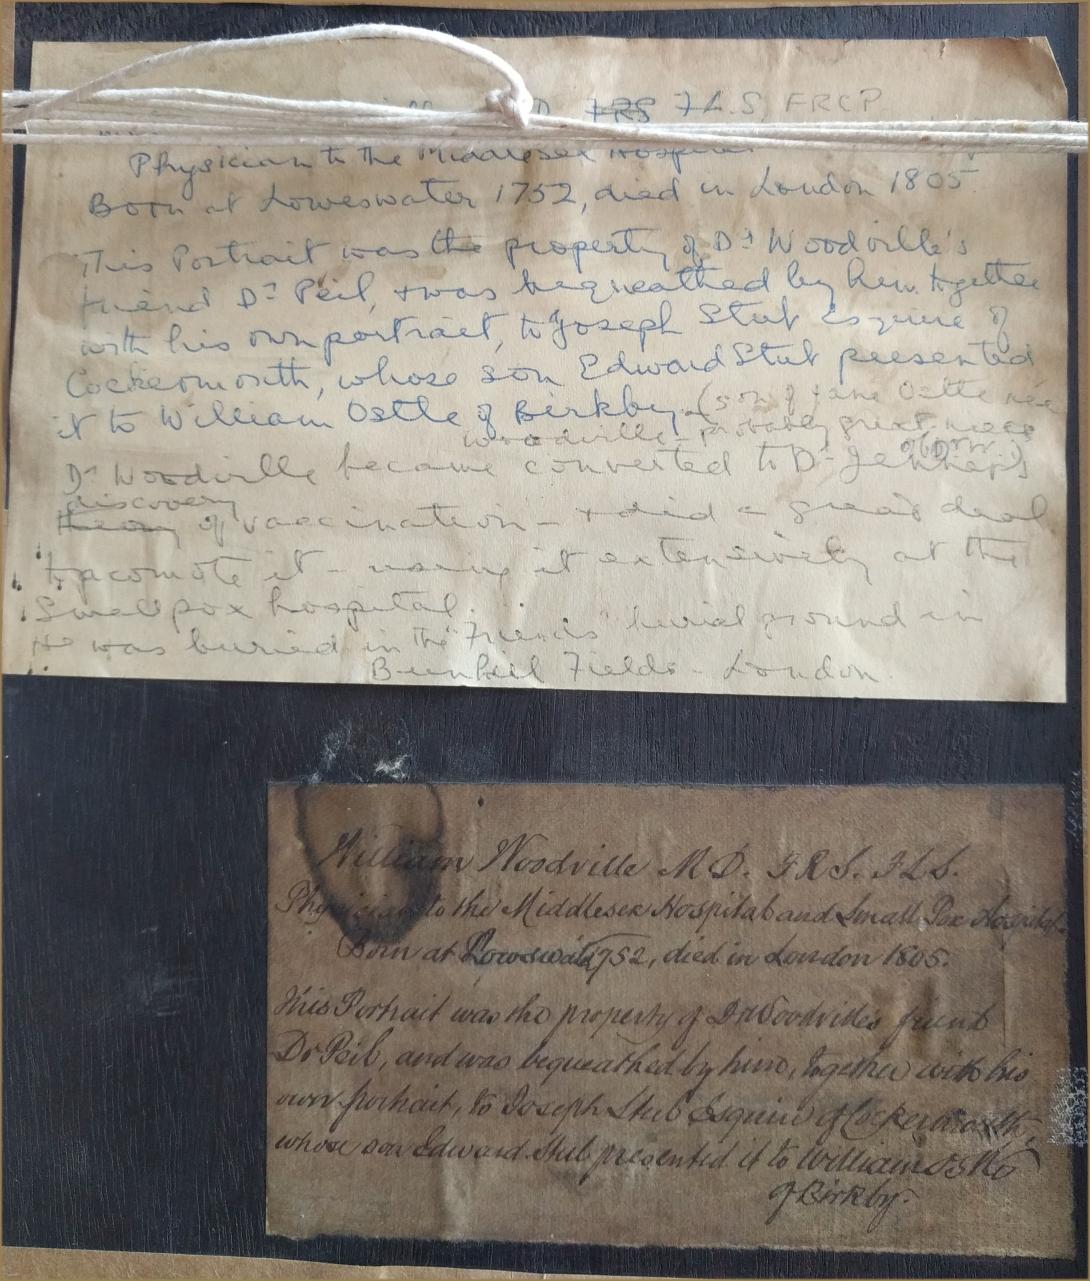 D. FRS F.L.S, FRCP
Physician to the Middlesex Hospital
Born at Loweswater 1752, died in London 1805
This Portrait was the property of Dr Woodville's
friend Dr Peil, & was bequeathed by him together
with his own portrait, to Joseph Stub Esquire of
Cockermouth, whose son Edward Stub presented
it to William Ostle of Birkby. (son of Jane Ostle née
Woodville - probably great niece
of Dr W.)
Dr Woodville became converted to Dr Jenner's
discovery
theory of vaccination - & did a great deal
to promote it - using it extensively at the
Smallpox hospital.
He was buried in the "Friends" burial ground in
Bunhill Fields - London.
William Woodville M.D. F.R.S. F.L.S.
Physician to the Middlesex Hospital and Small Pox Hospital.
Born at 1752, died in London 1805.
This Portrait was the property of Dr Woodville's friend
Dr Peil, and was bequeathed by him, together with his
own portrait, to Joseph Stub Esquire of Cockermouth,
whose son Edward Stub presented it to William Ostle
of Birkby.